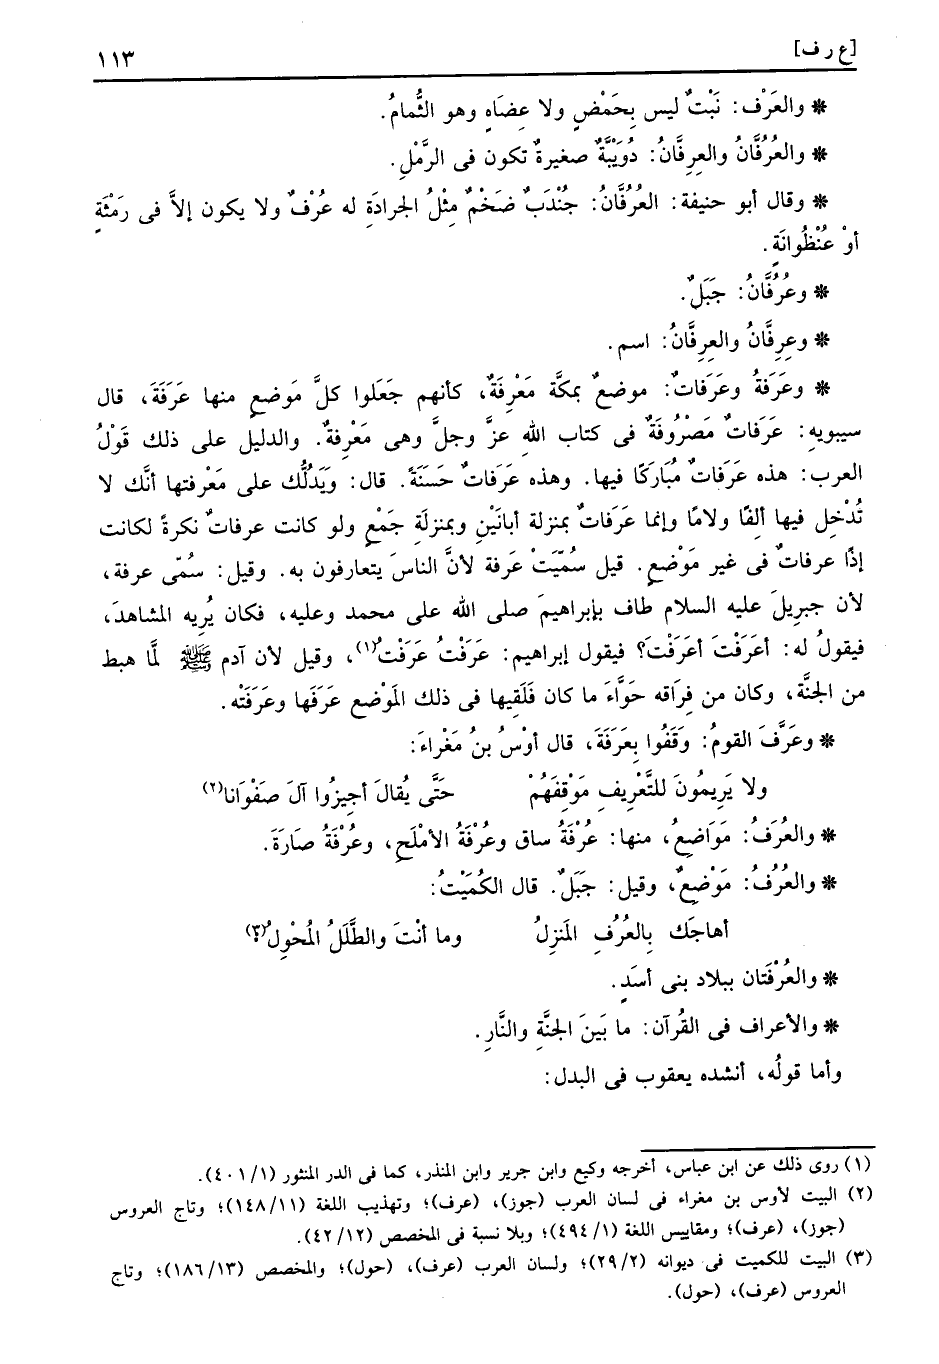 [ع ر ف] ١١٣
* والعَرْف: نَبْتٌ ليس بِحَمْضٍ ولا عِضَاهٍ وهو الثُّمامُ.
* والعُرُفَّانُ والعِرِفَّانُ: دُوَيْبَّةٌ صغيرةٌ تكون فى الرَّمْلِ.
* وقال أبو حنيفة: العُرُفَّانُ: جُنْدَبٌ ضَخْمٌ مِثْلُ الجرادَةِ له عُرْفٌ ولا يكون إلاَّ فى رَمْثَةٍ
أوْ عُنْظُوانَةٍ.
* وعُرُفَّانُ: جَبَلٌ.
* وعِرِفَّانُ والعِرِفَّانُ: اسم.
* وعَرَفَةُ وعَرَفَاتٌ: موضعٌ بمكَّة مَعْرِفَةٌ، كأنهم جَعَلوا كلَّ مَوضعٍ منها عَرَفَةَ، قال
سيبويه: عَرَفاتٌ مَصْرُوفَةٌ فى كتاب اللهِ عزَّ وجلَّ وهى مَعْرِفةٌ. والدليل على ذلك قَوْلُ
العرب: هذه عَرَفاتٌ مُبَارَكًا فيها. وهذه عَرَفاتٌ حَسَنَةً. قال: ويَدَلُّك على مَعْرفتها أنَّك لا
تُدْخِل فيها ألِفًا ولامًا وإنما عَرَفاتٌ بمنزلة أبانَيْنِ وبمنزلَةِ جَمْعٍ ولو كانت عرفاتٌ نكرةً لكانت
إذًا عرفاتٌ فى غير مَوْضعٍ. قيل سُمِّيَتْ عَرفة لأنَّ الناسَ يتعارفون به. وقيل: سُمِّى عرفة،
لأن جبريلَ عليه السلام طاف بإبراهيمَ صلى الله على محمد وعليه، فكان يُريه المشاهدَ،
فيقولُ له: أعَرَفْتَ أعَرَفْتَ؟ فيقول إبراهيم: عَرَفْتُ عَرَفْتُ(١)، وقيل لأن آدم ﷺ لمَّا هبط
من الجنَّة، وكان من فِرَاقه حَوَّاءَ ما كان فَلَقِيها فى ذلك المَوْضع عَرَفَها وعَرَفَتْه.
* وعَرَّفَ القومُ: وَقَفُوا بِعَرَفَةَ، قال أوْسُ بنُ مَغْراءَ:
ولا يَرِيمُونَ للتَّعْرِيفِ مَوْقِفَهُمْ حَتَّى يُقالَ أجِيزُوا آلَ صَفْوَانا(٢)
* والعُرَفُ: مَوَاضعُ، منها: عُرْفَةُ ساق وعُرْفَةُ الأمْلَحِ، وعُرْفَةُ صَارَةَ.
* والعُرُفُ: مَوْضعٌ، وقيل: جَبَلٌ. قال الكُمَيْتُ:
أهاجَك بِالعُرُفِ المَنزلُ وما أنْتَ والطَّلَلُ المُحْوِلُ(٣)
* والعُرْفَتان ببلاد بنى أسَدٍ.
* والأعراف فى القُرآن: ما بَينَ الجنَّةِ والنَّارِ.
وأما قولُه، أنشده يعقوب فى البدل:
(١) روى ذلك عن ابن عباس، أخرجه وكيع وابن جرير وابن المنذر، كما فى الدر المنثور (٤٠١/١).
(٢) البيت لأوس بن مغراء فى لسان العرب (جوز)، (عرف)؛ وتهذيب اللغة (١٤٨/١١)؛ وتاج العروس
(جوز)، (عرف)؛ ومقاييس اللغة (٤٩٤/١)؛ وبلا نسبة فى المخصص (٤٢/١٢).
(٣) البيت للكميت فى ديوانه (٢٩/٢)؛ ولسان العرب (عرف)، (حول)؛ والمخصص (١٨٦/١٣)؛ وتاج
العروس (عرف)، (حول).